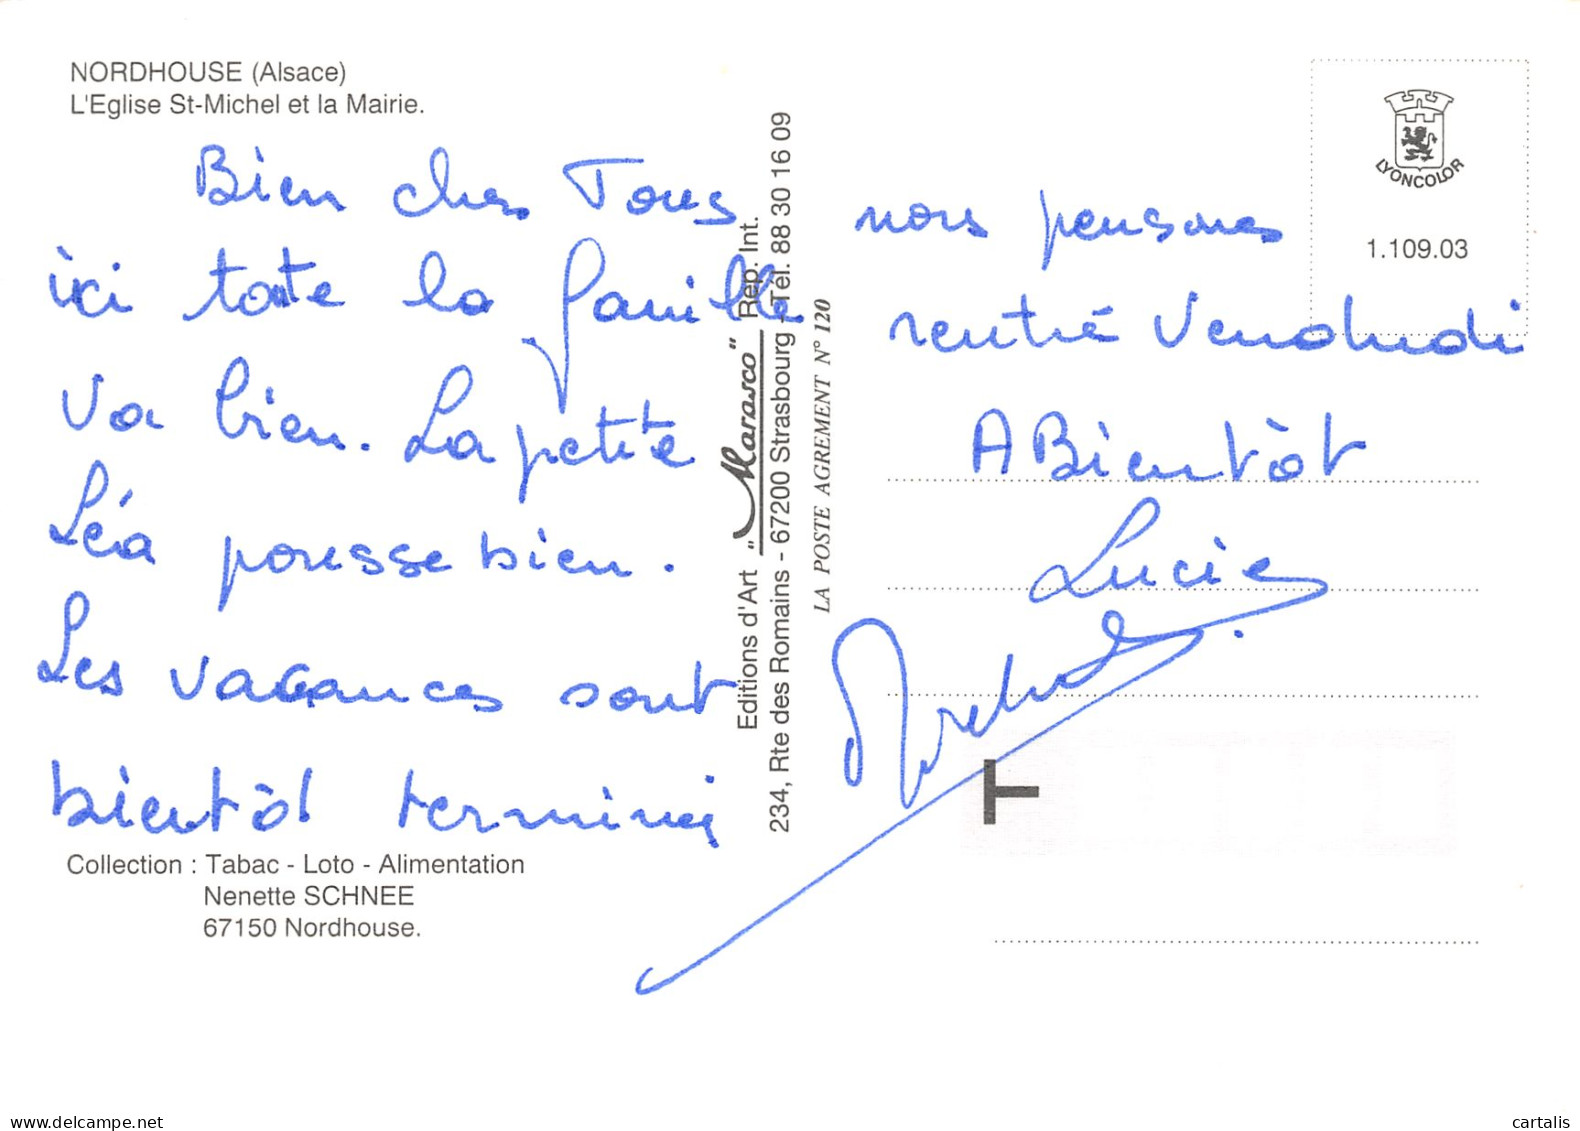 NORDHOUSE (Alsace)
L'Eglise St-Michel et la Mairie.
Bien chers Tous
ici toute la famille
va bien. La petite
Léa pousse bien.
Les vacances sont
bientôt terminé
Collection : Tabac - Loto - Alimentation
Nenette SCHNEE
67150 Nordhouse.
Editions d'Art "Marasco" Rep. Int.
234, Rte des Romains - 67200 Strasbourg - Tél. 88 30 16 09
LA POSTE AGREMENT N° 120
LYONCOLOR
1.109.03
nous pensons
rentré Vendredi
A Bientôt
Lucie
T
delcampe.net
cartalis